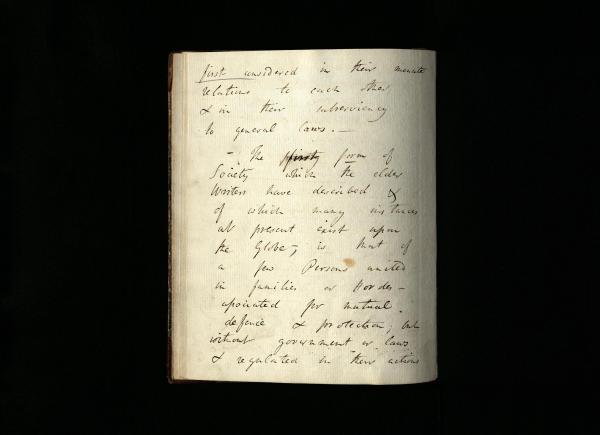 first considered in their minute
relations to each other
& in their subserviency
to general laws. —
— The form of
Society which the elder
Writers have described &
of which many instances
at present exist upon
the Globe, is that of
a few Persons united
in families or Hordes –
associated for mutual
defence & protection; but
without government or laws
& regulated in their actions